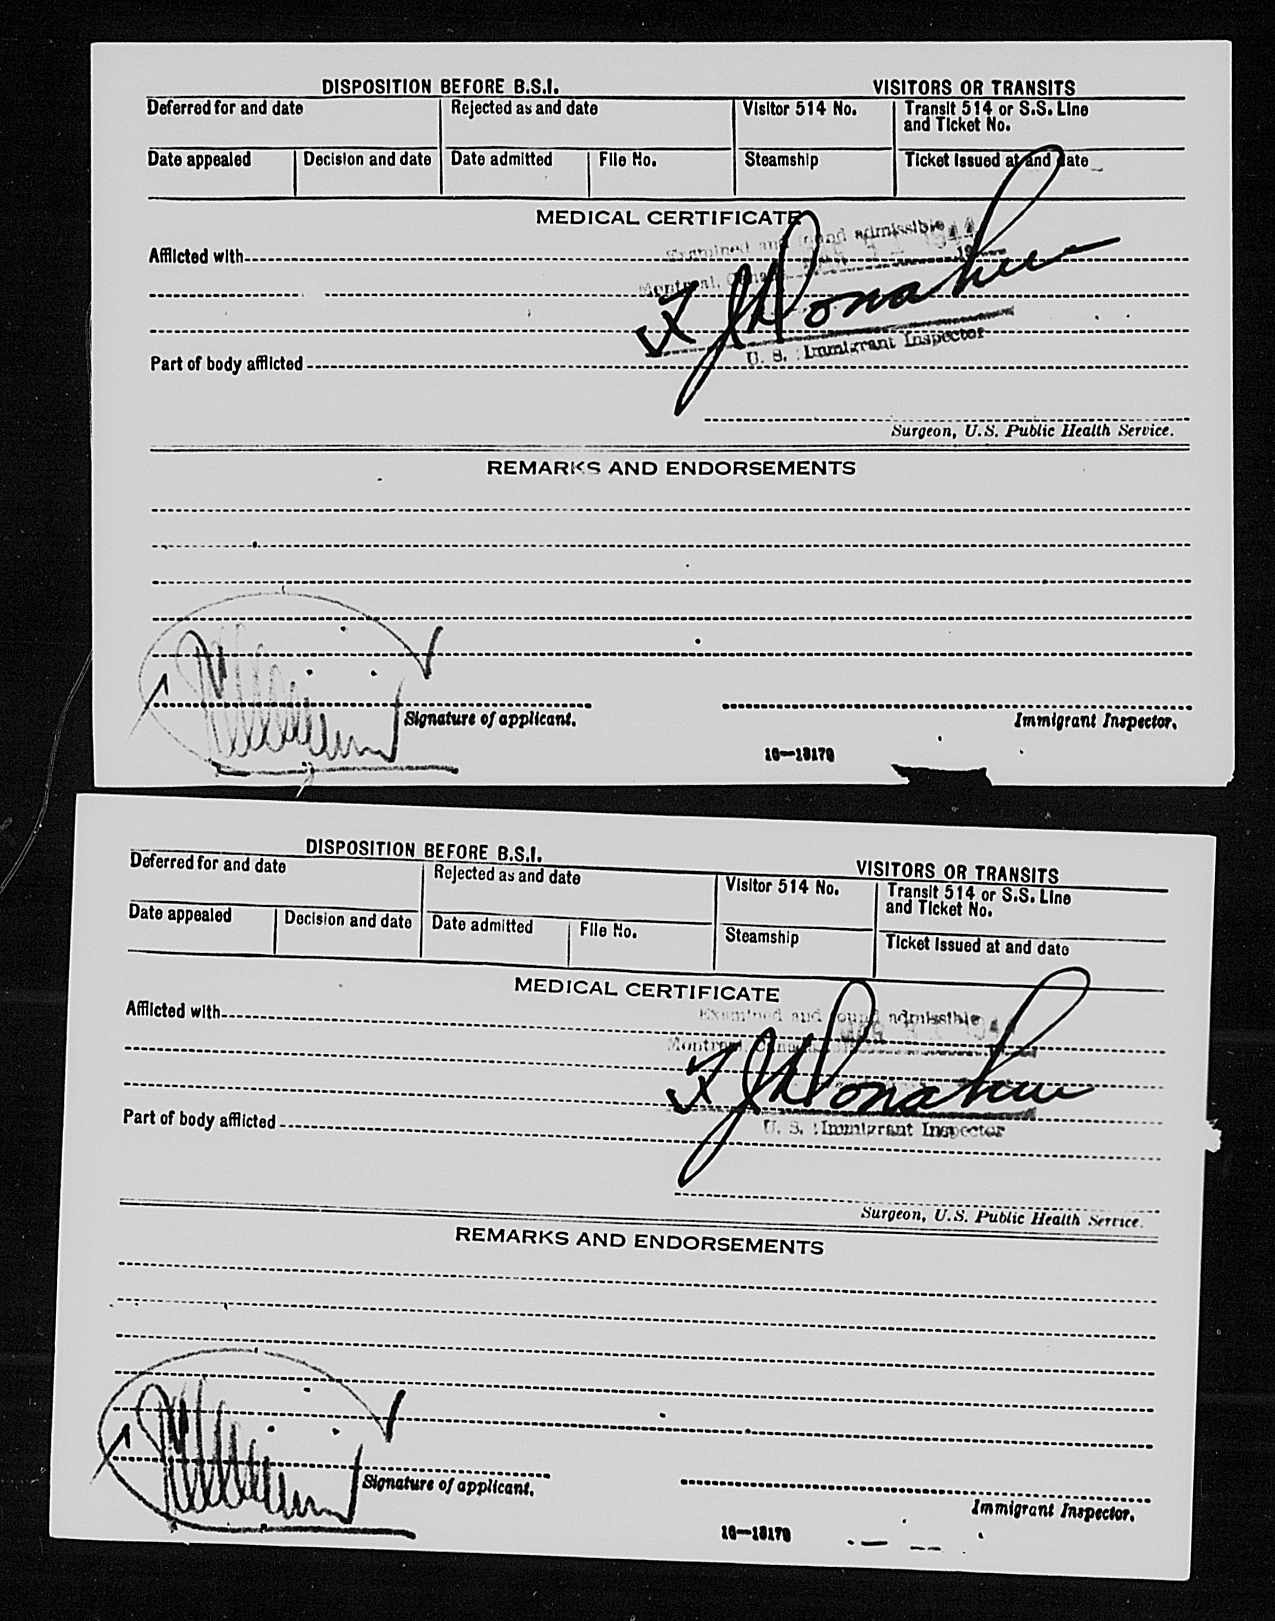 DISPOSITION BEFORE B.S.I. VISITORS OR TRANSITS
Deferred for and date Rejected as and date Visitor 514 No. Transit 514 or S.S. Line
and Ticket No.
Date appealed Decision and date Date admitted File No. Steamship Ticket issued at and date
MEDICAL CERTIFICATE
Examined and found admissible
Afflicted with
Montreal, Canada
Donahue
U. S. Immigrant Inspector
Part of body afflicted
Surgeon, U.S. Public Health Service.
REMARKS AND ENDORSEMENTS
Signature of applicant. Immigrant Inspector.
16—13170
DISPOSITION BEFORE B.S.I. VISITORS OR TRANSITS
Deferred for and date Rejected as and date Visitor 514 No. Transit 514 or S.S. Line
and Ticket No.
Date appealed Decision and date Date admitted File No. Steamship Ticket issued at and date
MEDICAL CERTIFICATE
Examined and found admissible
Afflicted with
Montreal, Canada
Donahue
U. S. Immigrant Inspector
Part of body afflicted
Surgeon, U.S. Public Health Service.
REMARKS AND ENDORSEMENTS
Signature of applicant. Immigrant Inspector.
16—13170